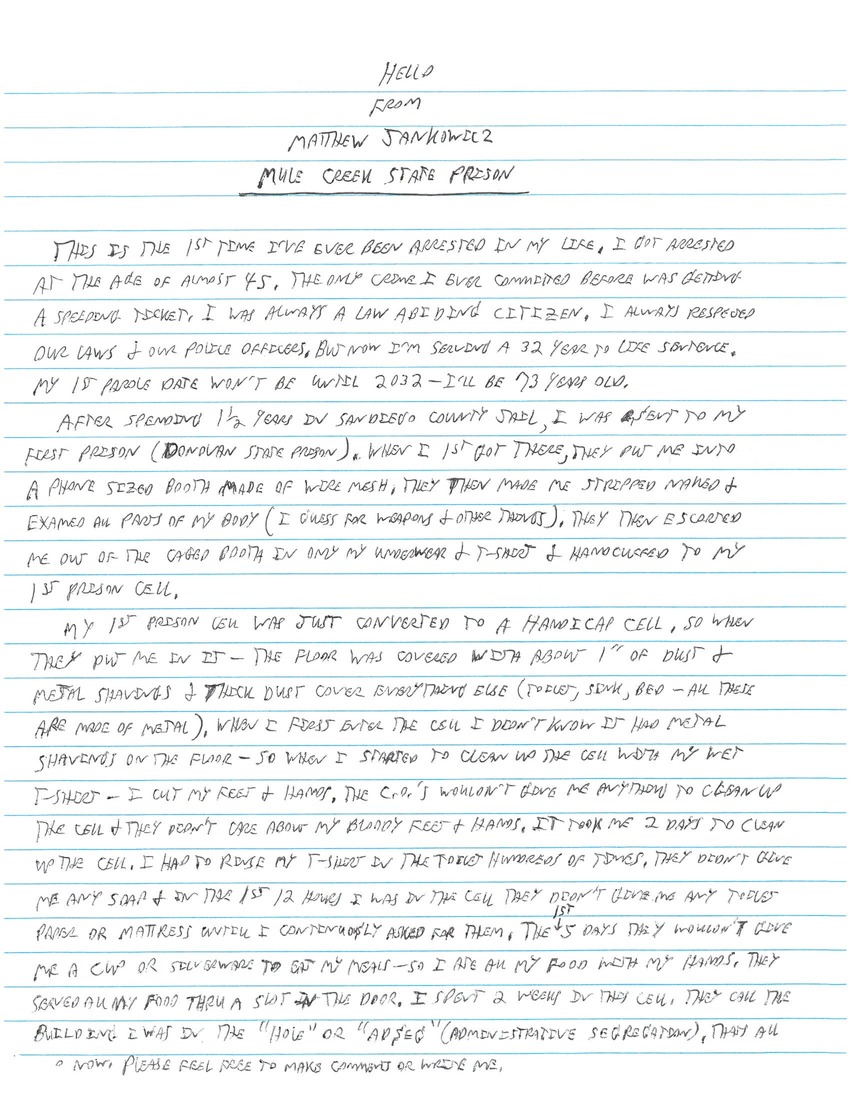 HELLO
FROM
MATTHEW JANKOWICZ
MULE CREEK STATE PRISON
THIS IS THE 1ST TIME I'VE EVER BEEN ARRESTED IN MY LIFE. I GOT ARRESTED
AT THE AGE OF ALMOST 45. THE ONLY CRIME I EVER COMMITED BEFORE WAS GETTING
A SPEEDING TICKET. I WAS ALWAYS A LAW ABIDING CITIZEN. I ALWAYS RESPECED
OUR LAWS & OUR POLICE OFFICERS. BUT NOW I'M SERVING A 32 YEAR TO LIFE SENTENCE.
MY 1ST PAROLE DATE WON'T BE UNTIL 2032 - I'LL BE 73 YEARS OLD.
AFTER SPENDING 1½ YEARS IN SAN DIEGO COUNTY JAIL, I WAS SENT TO MY
FIRST PRISON (DONOVAN STATE PRISON). WHEN I 1ST GOT THERE, THEY PUT ME INTO
A PHONE SIZED BOOTH MADE OF WIRE MESH. THEY THEN MADE ME STRIPPED NAKED &
EXAMED ALL PARTS OF MY BODY (I GUESS FOR WEAPONS & OTHER THINGS). THEY THEN ESCORTED
ME OUT OF THE CAGED BOOTH IN ONLY MY UNDERWEAR & T-SHIRT & HANDCUFFED TO MY
1ST PRISON CELL.
MY 1ST PRISON CELL WAS JUST CONVERTED TO A HANDICAP CELL, SO WHEN
THEY PUT ME IN IT - THE FLOOR WAS COVERED WITH ABOUT 1" OF DUST &
METAL SHAVINGS & THICK DUST COVER EVERYTHING ELSE (TOILET, SINK, BED - ALL THESE
ARE MADE OF METAL). WHEN I FIRST ENTER THE CELL I DIDN'T KNOW IT HAD METAL
SHAVINGS ON THE FLOOR - SO WHEN I STARTED TO CLEAN UP THE CELL WITH MY WET
T-SHIRT - I CUT MY FEET & HANDS. THE C.O.'S WOULDN'T GIVE ME ANYTHING TO CLEAN UP
THE CELL & THEY DIDN'T CARE ABOUT MY BLOODY FEET & HANDS. IT TOOK ME 2 DAYS TO CLEAN
UP THE CELL. I HAD TO RINSE MY T-SHIRT IN THE TOILET HUNDREDS OF TIMES. THEY DIDN'T GIVE
ME ANY SOAP & IN THE 1ST 12 HOURS I WAS IN THE CELL THEY DIDN'T GIVE ME ANY TOILET
PAPER OR MATTRESS UNTIL I CONTINUOUSLY ASKED FOR THEM. THE 1ST 5 DAYS THEY WOULDN'T GIVE
ME A CUP OR SILVERWARE TO EAT MY MEALS - SO I ATE ALL MY FOOD WITH MY HANDS. THEY
SERVED ALL MY FOOD THRU A SLOT IN THE DOOR. I SPENT 2 WEEKS IN THIS CELL. THEY CALL THE
BUILDING I WAS IN THE "HOLE" OR "ADSEG" (ADMINISTRATIVE SEGREGATION). THAT'S ALL
NOW. PLEASE FEEL FREE TO MAKE COMMENT OR WRITE ME.